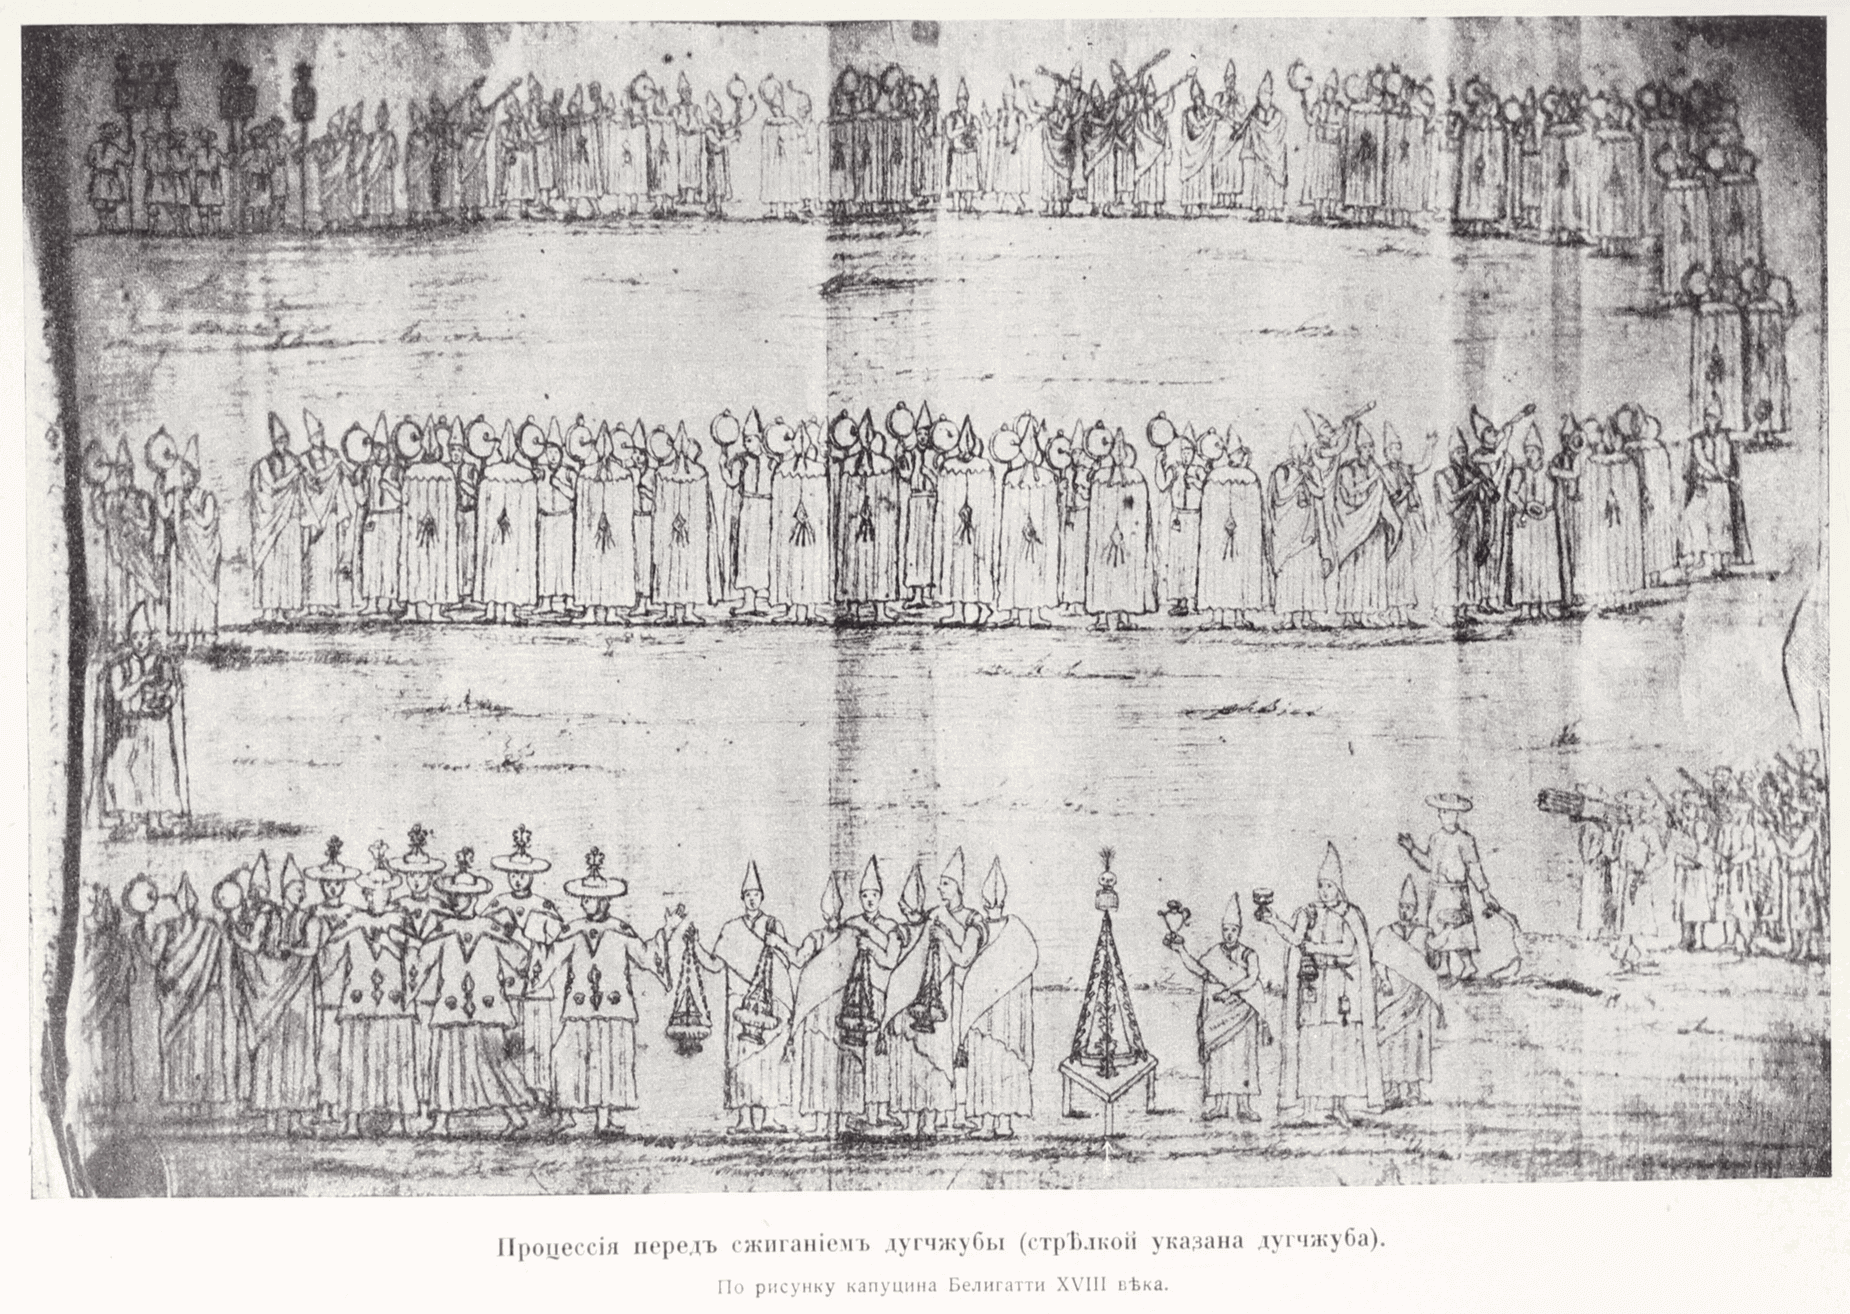 Процессія передъ сжиганіемъ дугчжубы (стрѣлкой указана дугчжуба).
По рисунку капуцина Белигатти XVIII вѣка.